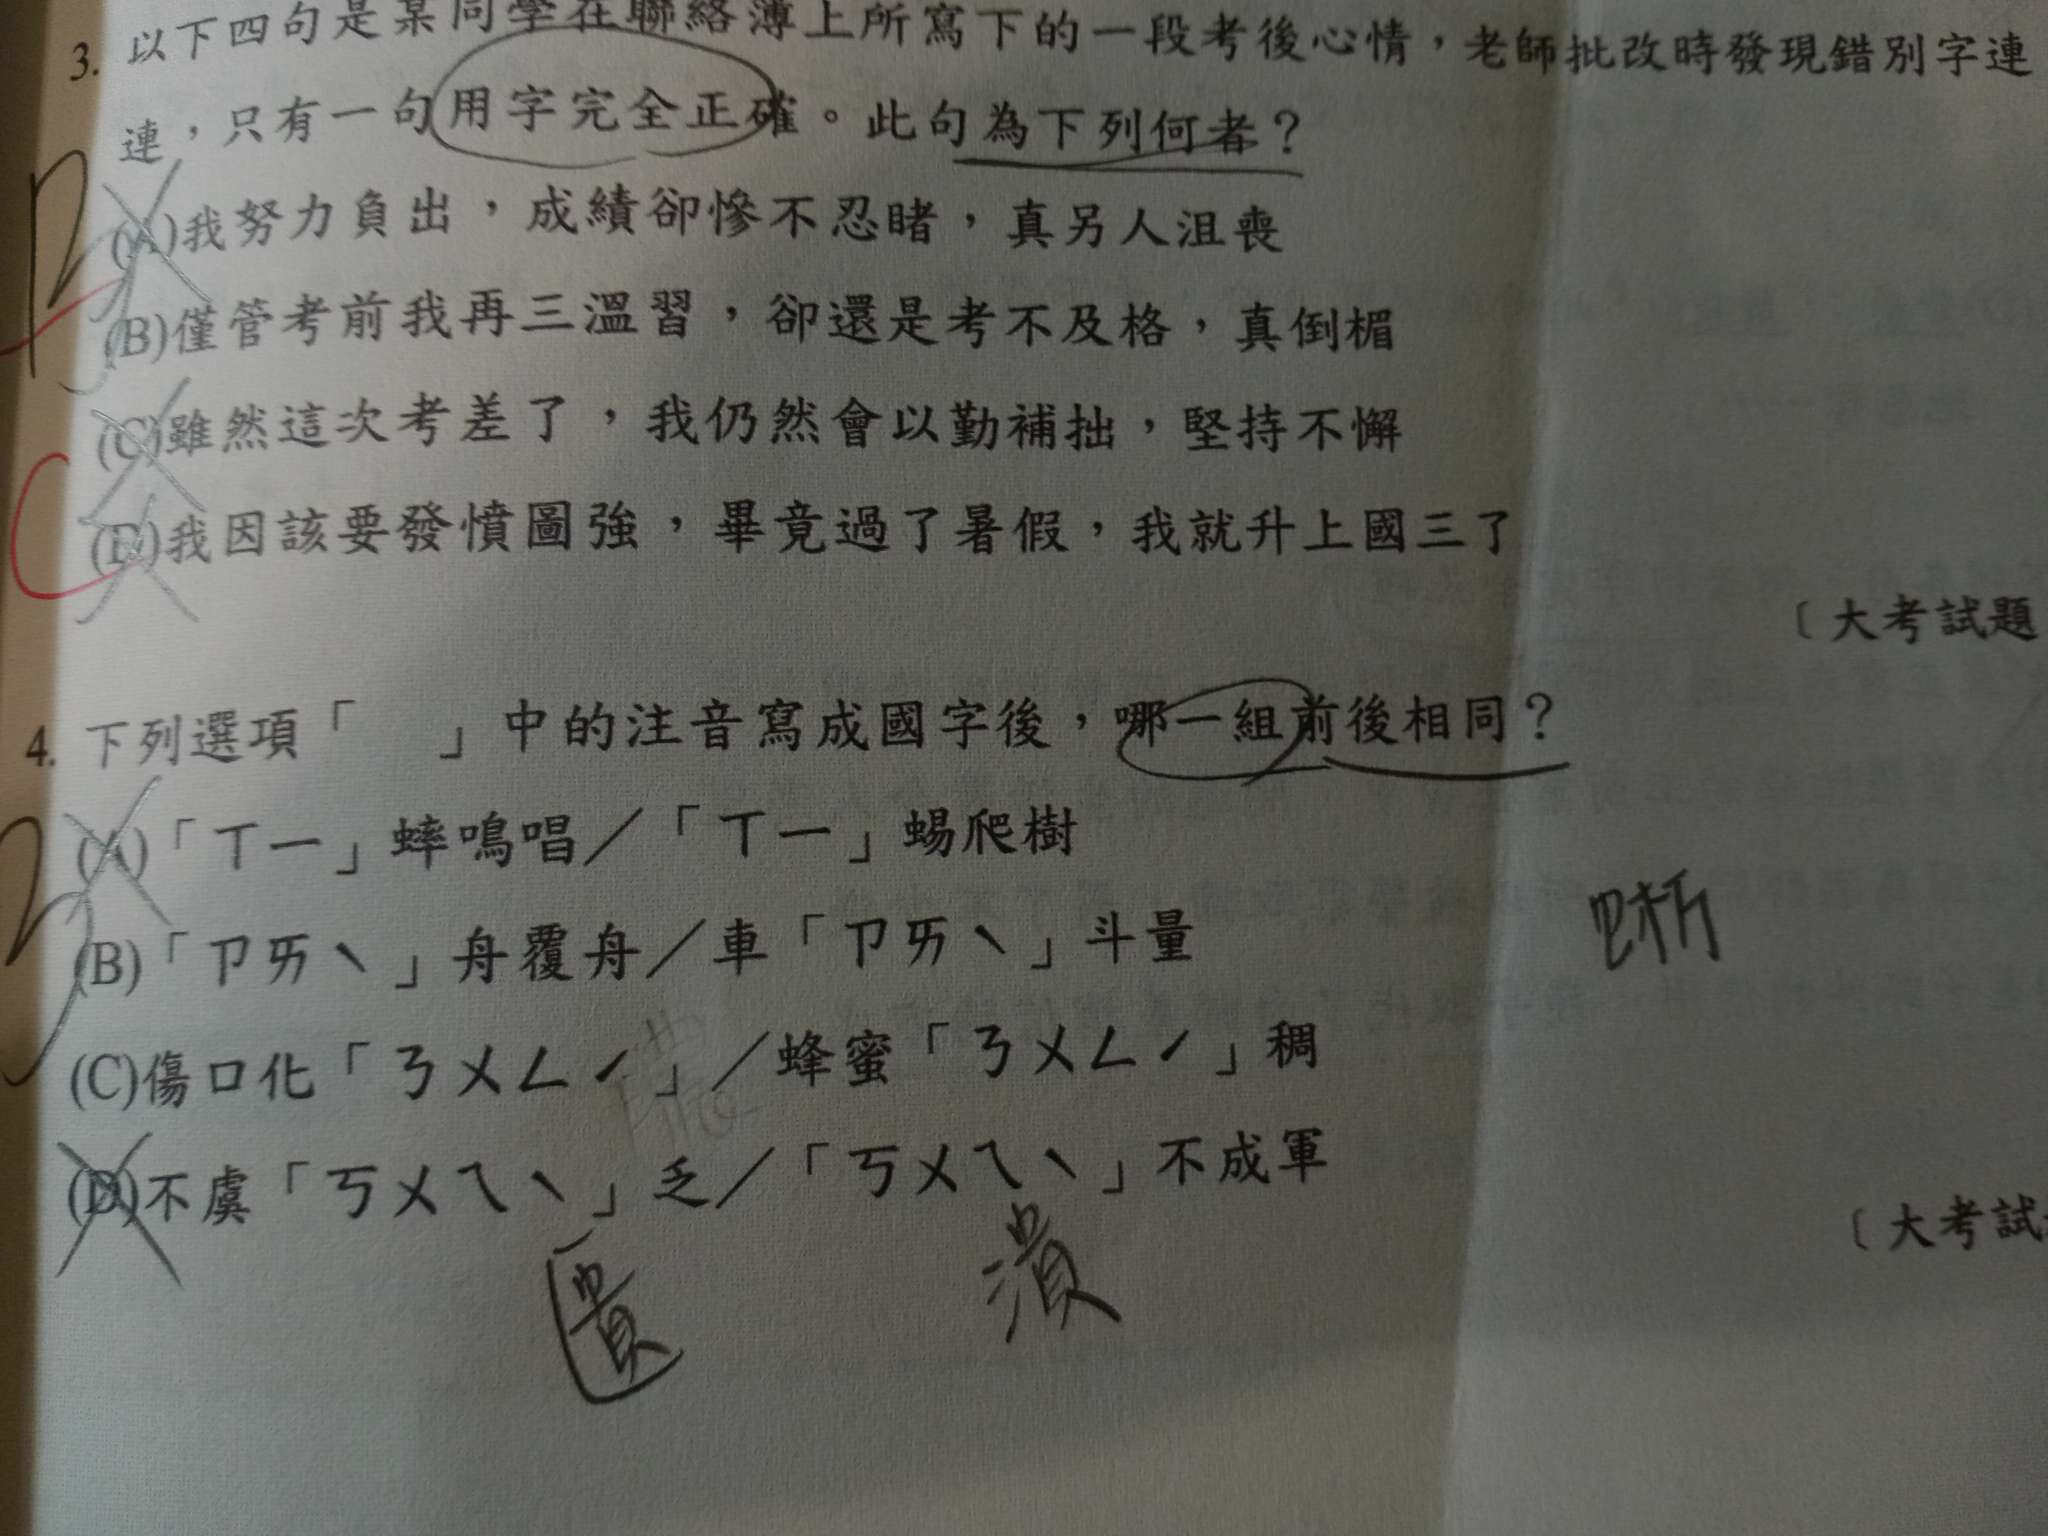 3. 以下四句是某同學在聯絡簿上所寫下的一段考後心情，老師批改時發現錯別字連
連，只有一句用字完全正確。此句為下列何者？
(A)我努力負出，成績卻慘不忍睹，真另人沮喪
(B)僅管考前我再三溫習，卻還是考不及格，真倒楣
(C)雖然這次考差了，我仍然會以勤補拙，堅持不懈
(D)我因該要發憤圖強，畢竟過了暑假，我就升上國三了
〔大考試題
4. 下列選項「　」中的注音寫成國字後，哪一組前後相同？
(A)「ㄒㄧ」蟀鳴唱／「ㄒㄧ」蜴爬樹
(B)「ㄗㄞˋ」舟覆舟／車「ㄗㄞˋ」斗量
(C)傷口化「ㄋㄨㄥˊ」／蜂蜜「ㄋㄨㄥˊ」稠
(D)不虞「ㄎㄨㄟˋ」乏／「ㄎㄨㄟˋ」不成軍
〔大考試
匱 潰